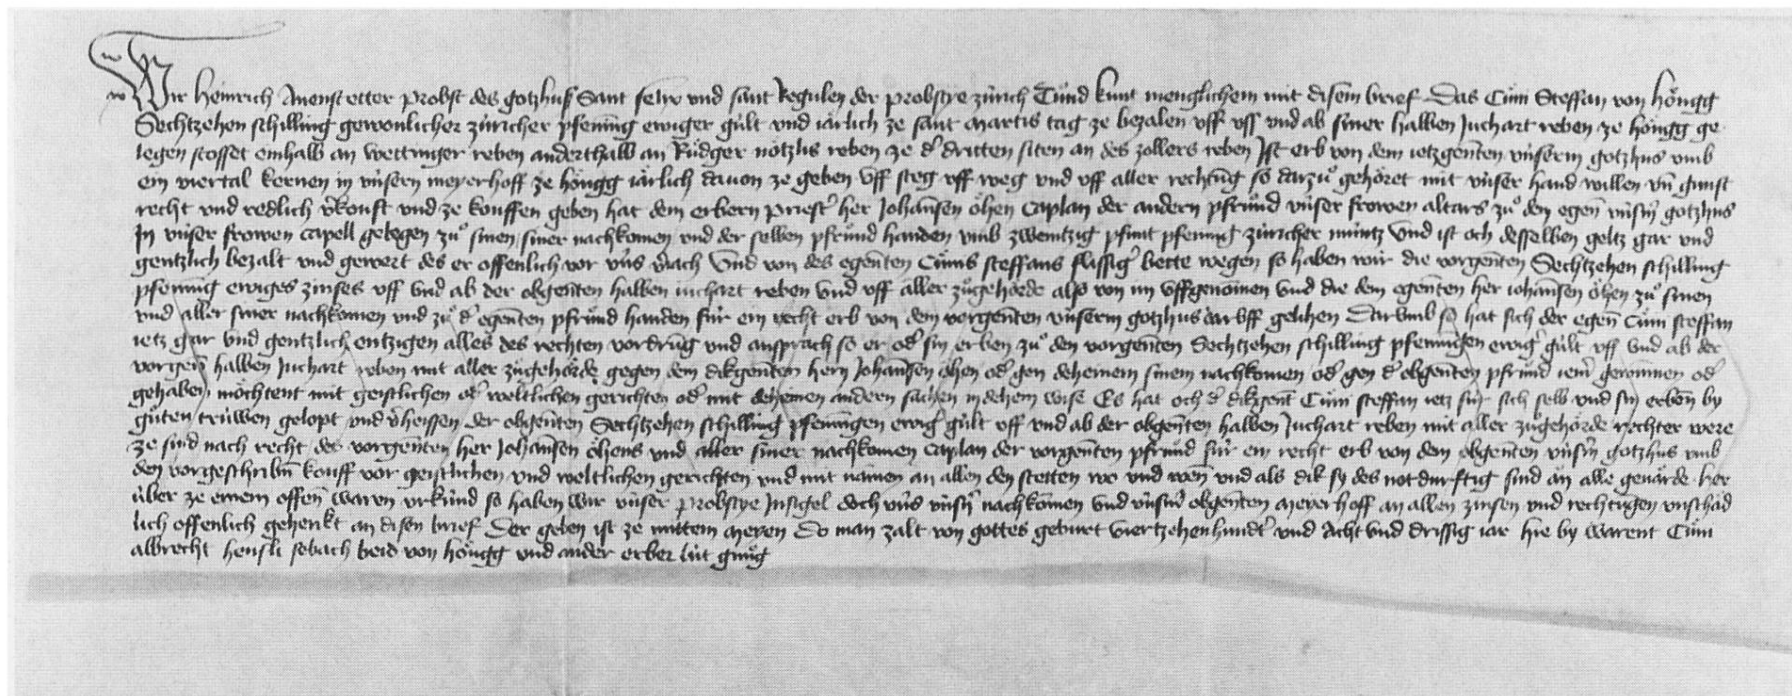 Wir Heinrich Anenstetter Probst des gotzhus Sant felix und sant Regulen der probstye zürich Tůnd kunt menglichem mit disem brief Das Cůni Steffan von Höngg
Sechtzehen schilling gewonlicher züricher pfening ewiger gült vnd iärlich ze sant Martis tag ze bezalen vff vss vnd ab siner halben Juchart reben ze höngg ge
legen stosset einhalb an wettinger reben anderthalb an Růdger nötzlis reben ze dˀ dritten siten an des zollers reben Ist erb von dem ietzgen̄ten vnserm gotzhus vmb
ein viertal kernen in vnsern meyerhoff ze höngg iärlich dauon ze geben vff steg vff weg vnd vff aller rechtung so darzů gehöret mit vnser hand willen vn̄ gunst
recht vnd redlich v̓kouft vnd ze kouffen geben hat dem erbern priestˀ her Johansen öhen Caplan der andern pfrůnd vnser frowen altars zů den egen̄ vnsm̄ gotzhus
In vnser frowen capell gelegen zů sinen siner nachkomen vnd der selben pfrůnd handen vmb zwentzig pfunt pfening züricher müntz Vnd ist och desselben geltz gar vnd
gentzlich bezalt vnd gewert des er offenlich vor vns v̓iach Vnd von des egen̄ten Cůnis steffans flissigˀ bette wegen so haben wir die vorgen̄ten Sechtzehen schilling
pfening ewiges zinses vff vnd ab der obgen̄ten halben iuchart reben vnd vff aller zůgehörde also von im vffgenomen vnd die dem egen̄ten her iohansen öhen zů sinen
vnd aller siner nachkomen vnd zů dˀ egen̄ten pfrůnd handen für ein recht erb von dem vorgen̄ten vnserm gotzhus darvff gelihen Darvmb so hat sich der egen̄ Cůni steffan
ietz gar vnd gentzlich entzigen alles des rechten vordrung vnd ansprach so er odˀ sin erben zů den vorgen̄ten Sechtzehen schilling pfenningen ewigˀ gült vff vnd ab der
vorgen̄ halben Juchart reben mit aller zůgehörde gegen dem dikgen̄ten hern Johansen öhen odˀ gen deheinem sinem nachkomen odˀ gen dˀ obgen̄ten pfrůnd iemˀ gewinnen odˀ
gehaben möchtent mit geistlichen odˀ weltlichen gerichten odˀ mit deheinen andern sachen in dehein wise Es hat och dˀ dikgent̄ Cůni steffan ietz für sich selb vnd sin erben by
gůten trüwen gelopt vnd v̓heissen der obgen̄ten Sechtzehen schilling pfenningen ewigˀ gült vff vnd ab der obgen̄ten halben Juchart reben mit aller zůgehörde rechter were
ze sind nach recht des vorgen̄ten her Johansen öhens vnd aller siner nachkomen Caplan der vorgen̄ten pfrůnd für ein recht erb von dem obgen̄ten vnsm̄ gotzhus vmb
den vorgeschribn̄ kouff vor geistlichen vnd weltlichen gerichten vnd mit namen an allen den stetten wo vnd wen̄ vnd als dik sy des notdurftig sind än alle geuärde Her
über ze einem offenn̄ waren vrkünd so haben wir vnser probstye Insigel doch vns vnsn̄ nachkomen vnd vnsm̄ obgen̄ten meyerhoff an allen zinsen vnd rechtungen vnschäd
lich offenlich gehenkt an disen brief Der geben ist ze mittem meyen Do man zalt von gottes geburt viertzehenhundtˀ vnd Acht vnd drissig iar hie by warent Cůni
albrecht hensli sebach beid von höngg vnd ander erber lüt gnůg